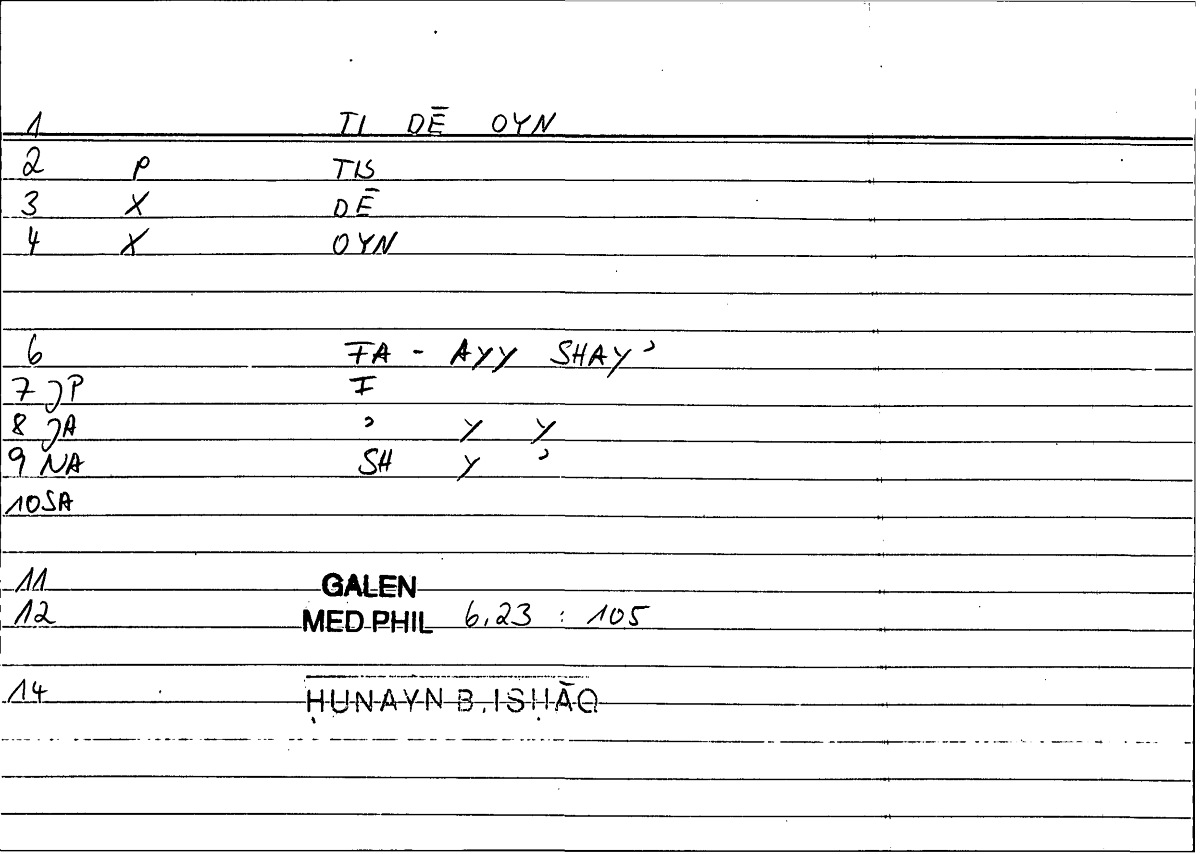 1 TI DĒ OYN
2 P TIS
3 X DĒ
4 X OYN
6 FA - AYY SHAY'
7 JP F
8 JA ' Y Y
9 NA SH Y '
10 SA
11 GALEN
12 MED PHIL 6,23 : 105
14 ḤUNAYN B. ISḤĀQ